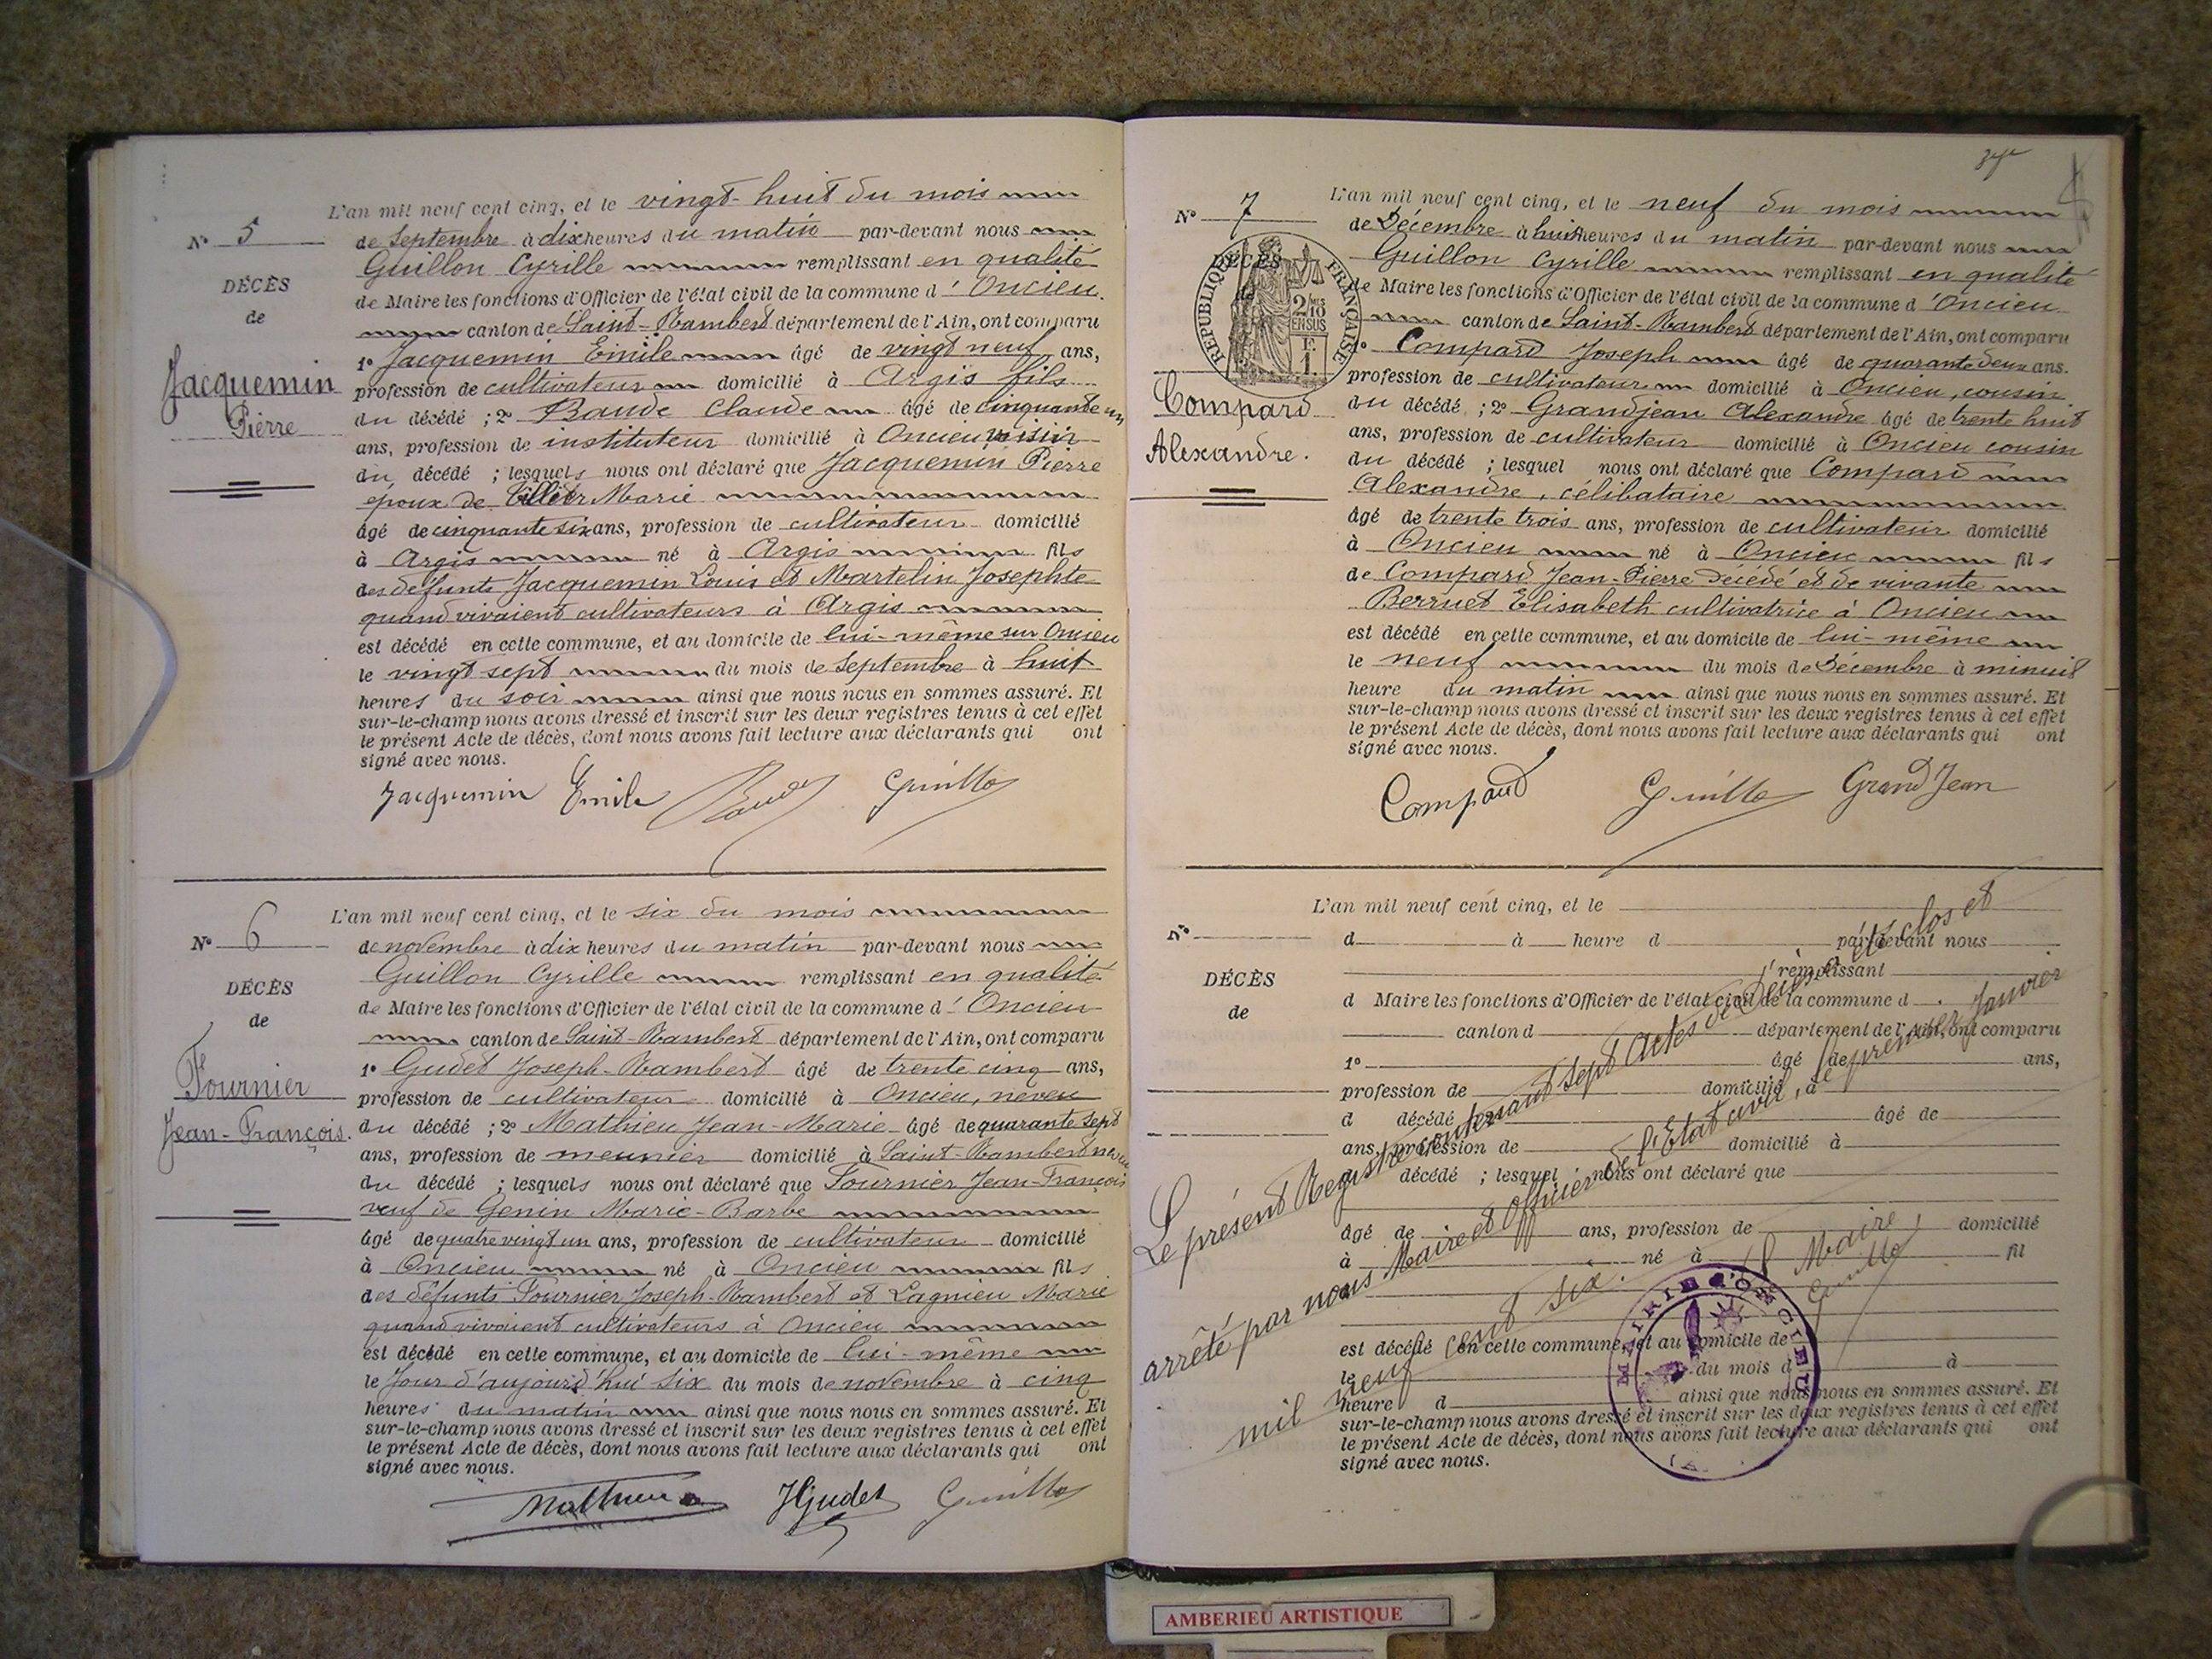 L'an mil neuf cent cinq, et le vingt-huit du mois
N° 5
de Septembre à dix heures du matin par-devant nous
Guillon Cyrille remplissant en qualité
DÉCÈS
de
de Maire les fonctions d'Officier de l'état civil de la commune d'Oncieu.
canton de Saint-Rambert département de l'Ain, ont comparu
Jacquemin
Pierre
1° Jacquemin Emile âgé de vingt neuf ans,
profession de cultivateur domicilié à Argis fils
du décédé ; 2° Baude Claude âgé de cinquante un
ans, profession de instituteur domicilié à Oncieu voisin
du décédé ; lesquels nous ont déclaré que Jacquemin Pierre
époux de Marie
âgé de cinquante six ans, profession de cultivateur domicilié
à Argis né à Argis fils
des défunts Jacquemin Louis et Martelin Josephte
quand vivaient cultivateurs à Argis
est décédé en cette commune, et au domicile de lui-même sur Oncieu
le vingt sept du mois de Septembre à huit
heures du soir ainsi que nous nous en sommes assuré. Et
sur-le-champ nous avons dressé et inscrit sur les deux registres tenus à cet effet
le présent Acte de décès, dont nous avons fait lecture aux déclarants qui ont
signé avec nous.
Jacquemin Emile Baude Guillon
L'an mil neuf cent cinq, et le six du mois
N° 6
de novembre à dix heures du matin par-devant nous
Guillon Cyrille remplissant en qualité
DÉCÈS
de
de Maire les fonctions d'Officier de l'état civil de la commune d'Oncieu
canton de Saint-Rambert département de l'Ain, ont comparu
Fournier
Jean-François.
1° Gudet Joseph-Rambert âgé de trente cinq ans,
profession de cultivateur domicilié à Oncieu, neveu
du décédé ; 2° Mathieu Jean-Marie âgé de quarante sept
ans, profession de meunier domicilié à Saint-Rambert neveu
du décédé ; lesquels nous ont déclaré que Fournier Jean-François
veuf de Genin Marie-Barbe
âgé de quatre vingt un ans, profession de cultivateur domicilié
à Oncieu né à Oncieu fils
des défunts Fournier Joseph-Rambert et Lagnieu Marie
quand vivaient cultivateurs à Oncieu
est décédé en cette commune, et au domicile de lui-même
le Jour d'aujourd'hui six du mois de novembre à cinq
heures du matin ainsi que nous nous en sommes assuré. Et
sur-le-champ nous avons dressé et inscrit sur les deux registres tenus à cet effet
le présent Acte de décès, dont nous avons fait lecture aux déclarants qui ont
signé avec nous.
Mathieu JGudet Guillon
L'an mil neuf cent cinq, et le neuf du mois
N° 7
de Décembre à huit heures du matin par-devant nous
Guillon Cyrille remplissant en qualité
DÉCÈS
de
RÉPUBLIQUE FRANÇAISE
2/10
EN SUS
F.
1.
de Maire les fonctions d'Officier de l'état civil de la commune d'Oncieu
canton de Saint-Rambert département de l'Ain, ont comparu
Compard
Alexandre.
1° Compard Joseph âgé de quarante deux ans.
profession de cultivateur domicilié à Oncieu, cousin
du décédé ; 2° Grandjean Alexandre âgé de trente huit
ans, profession de cultivateur domicilié à Oncieu cousin
du décédé ; lesquel nous ont déclaré que Compard
Alexandre, célibataire
âgé de trente trois ans, profession de cultivateur domicilié
à Oncieu né à Oncieu fils
de Compard Jean-Pierre décédé et de vivante
Berruet Elisabeth cultivatrice à Oncieu
est décédé en cette commune, et au domicile de lui-même
le neuf du mois de Décembre à minuit
heure du matin ainsi que nous nous en sommes assuré. Et
sur-le-champ nous avons dressé et inscrit sur les deux registres tenus à cet effet
le présent Acte de décès, dont nous avons fait lecture aux déclarants qui ont
signé avec nous.
Compard Guillon GrandJean
L'an mil neuf cent cinq, et le
N°
d à heure d par-devant nous
remplissant
DÉCÈS
de
d Maire les fonctions d'Officier de l'état civil de la commune d
canton d département de l'Ain, ont comparu
1° âgé de ans,
profession de domicilié à
d décédé âgé de
ans, profession de domicilié à
d décédé ; lesquel nous ont déclaré que
âgé de ans, profession de domicilié
à né à fil
est décédé en cette commune, et au domicile de
le du mois d à
heure d ainsi que nous nous en sommes assuré. Et
sur-le-champ nous avons dressé et inscrit sur les deux registres tenus à cet effet
le présent Acte de décès, dont nous avons fait lecture aux déclarants qui ont
signé avec nous.
Le présent Registre contenant sept Actes de Décès a été clos et
arrêté par nous Maire et Officier de l'Etat civil, le premier Janvier
mil neuf cent six.
Maire,
Guillon
MAIRIE D'ONCIEU
AMBERIEU ARTISTIQUE